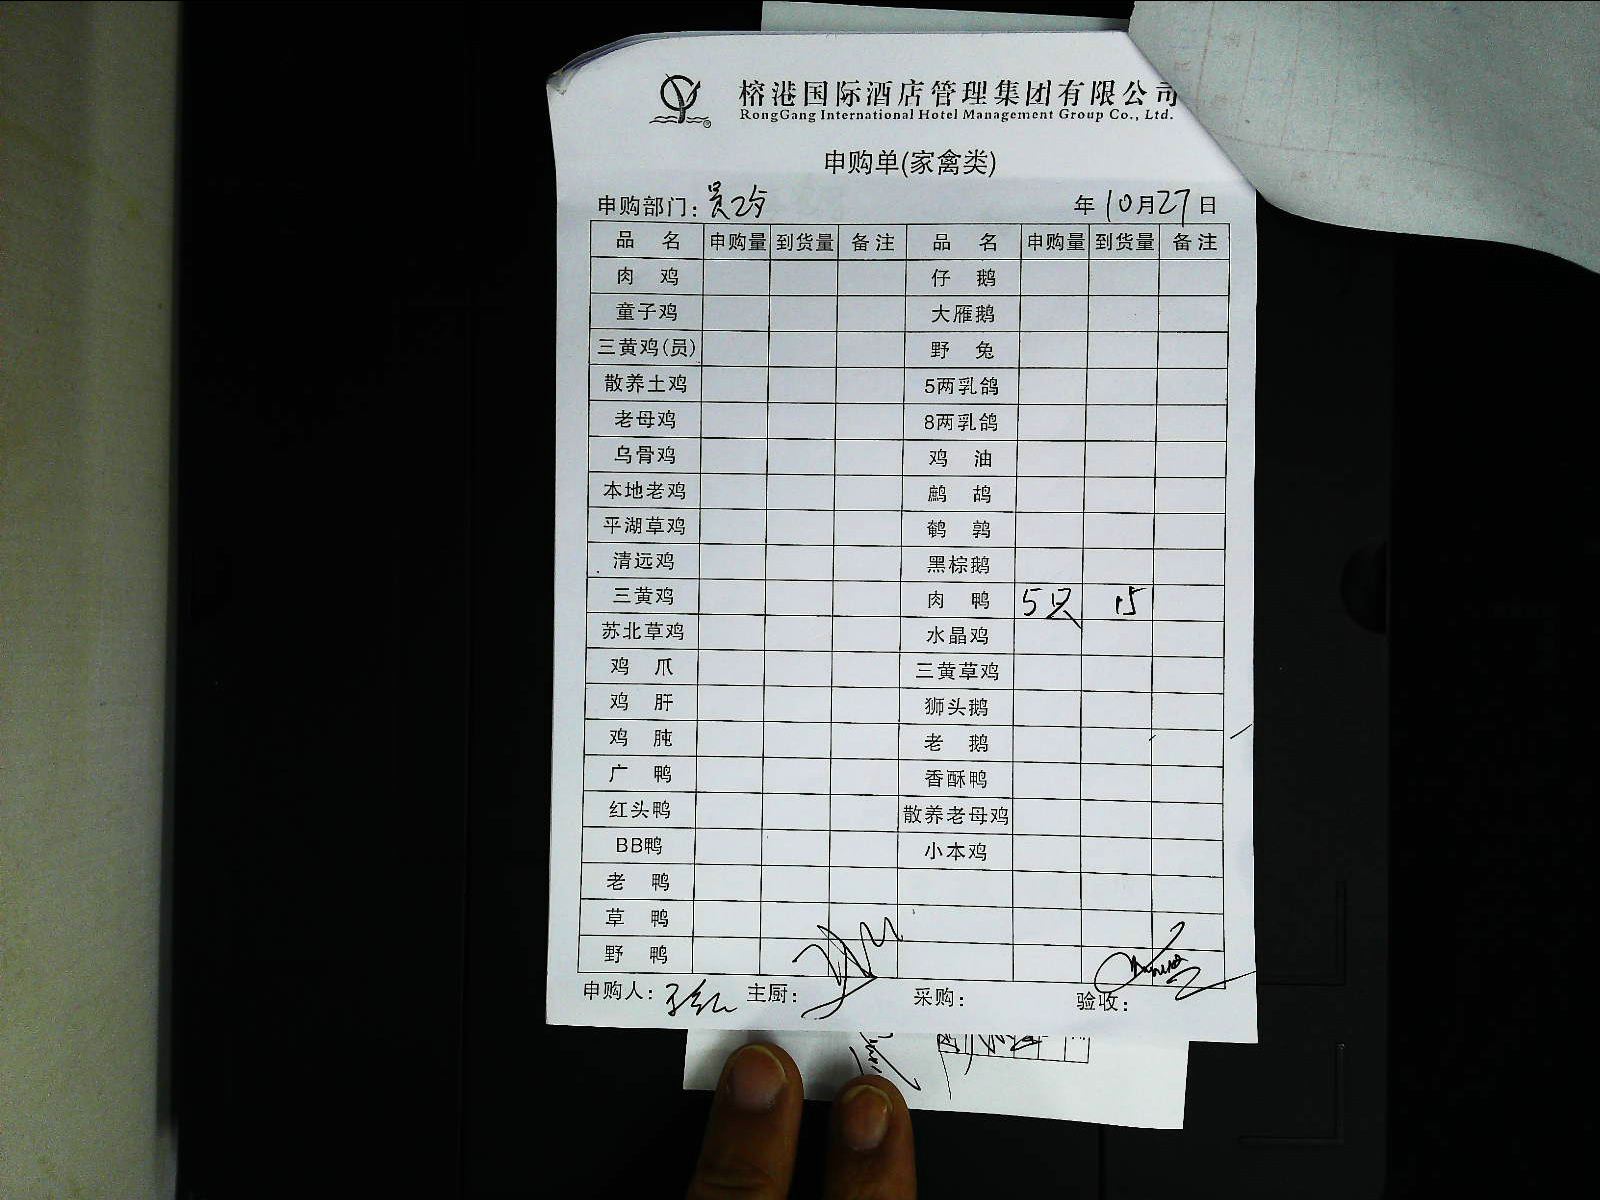 榕港国际酒店管理集团有限公司
RongGang International Hotel Management Group Co., Ltd.
申购单(家禽类)
申购部门: 年 10月27日
品名 申购量 到货量 备注 品名 申购量 到货量 备注
肉鸡 仔鹅
童子鸡 大雁鹅
三黄鸡(员) 野兔
散养土鸡 5两乳鸽
老母鸡 8两乳鸽
乌骨鸡 鸡油
本地老鸡 鹧鸪
平湖草鸡 鹌鹑
清远鸡 黑棕鹅
三黄鸡 肉鸭 5只 15
苏北草鸡 水晶鸡
鸡爪 三黄草鸡
鸡肝 狮头鹅
鸡肫 老鹅
广鸭 香酥鸭
红头鸭 散养老母鸡
BB鸭 小本鸡
老鸭
草鸭
野鸭
申购人: 主厨: 采购: 验收: